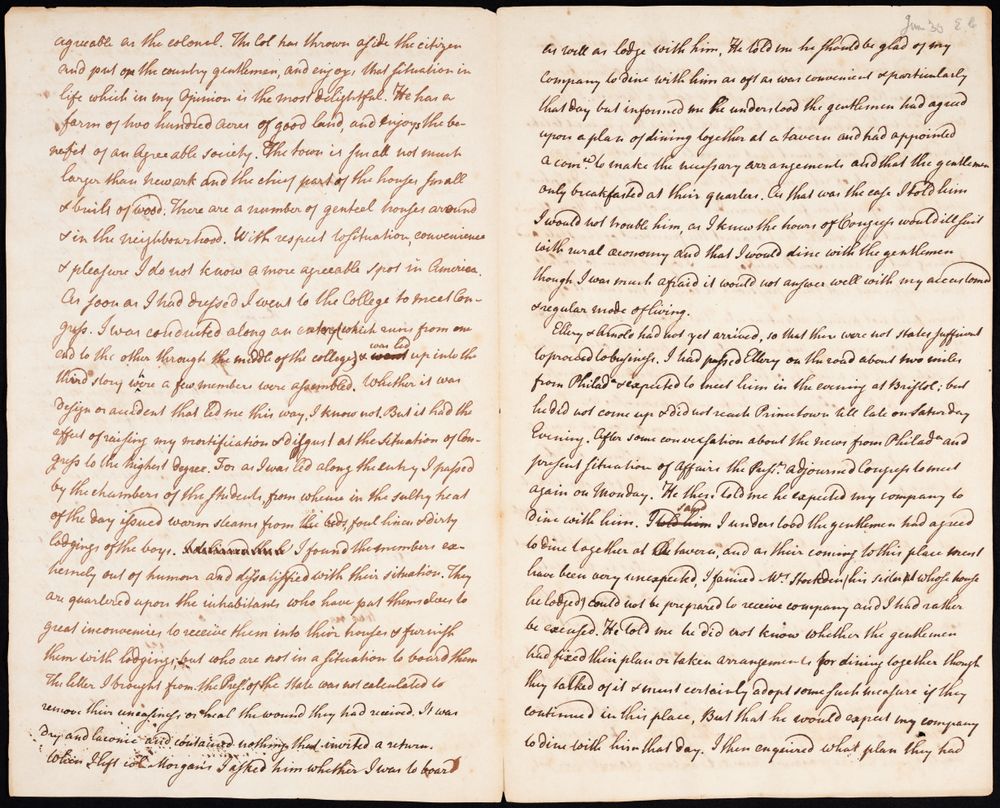 agreeable as the colonel. The Col has thrown aside the citizen
and put on the country gentlemen, and enjoys that situation in
life which in my Opinion is the most delightful. He has a
farm of two hundred acres of good land, and enjoys the be-
nefit of an agreeable society. The town is small not much
larger than Newark and the chief part of the houses small
& built of wood. There are a number of genteel houses around
& in the neighbourhood. With respect to situation, convenience
& pleasure I do not know a more agreeable spot in America.
As soon as I had dressed I went to the College to meet Con-
gress. I was conducted along an entry (which runs from one
end to the other through the middle of the college) & was led up into the
third story were a few member were assembled. Whether it was
design or accident that led me this way, I know not. But it had the
effect of raising my mortification & disgust at the situation of Con-
gress to the highest degree. For as I was led along the entry I passed
by the chambers of the students, from whence in the sultry heat
of the day issued warm steams from the beds, foul linen & dirty
lodgings of the boys. I found the members ex-
tremely out of humour and dissatisfied with their situation. They
are quartered upon the inhabitants who have put themselves to
great inconvenices to receive them into their houses & furnish
them with lodgings, but who are not in a situation to board them
The letter I brought from the Pres.t of the State was not calculated to
remove their uneasiness or heal the wound they had received. It was
Dry and laconic and contained nothing that invited a return.
When I left col Morgan's I asked him whether I was to board
Jun 30 E B
as well as lodge with him, He told me he should be glad of my
company to dine with him as oft as was convenient & particularly
that day but informed me he understood the gentlemen had agreed
upon a plan of dining together at a tavern and had appointed
a com.ee to make the necessary arrangements and that the gentlemen
only breakfasted at their quarters. As that was the case I told him
I would not trouble him, as I knew the hours of Congress would ill suit
with rural œconomy and that I would dine with the gentlemen
though I was much afraid it would not answer well with my accustomed
& regular mode of living.
Ellery & Arnold had not yet arrived, so that there were not states sufficient
to proceed to business. I had passed Ellery on the road about two miles
from Philad.a & expected to meet him in the evening at Bristol; but
he did not come up & did not reach Princetown till late on Saturday
Evening. After some conversation about the news from Philad.a and
present situation of Affairs the Pres.t adjourned Congress to meet
again on Monday. He then told me he expected my company to
dine with him. I told him said I understood the gentlemen had agreed
to dine together at the tavern, and as their coming to this place must
have been very unexpected, I fancied Mrs Stockden (his sister at whose house
he lodged) could not be prepared to receive company and I had rather
be excused. He told me he did not know whether the gentlemen
had fixed their plan or taken arrangements for dining together though
they talked of it & must certainly adopt some such measure if they
continued in this place, But that he would expect my company
to dine with him that day. I then enquired what plan they had